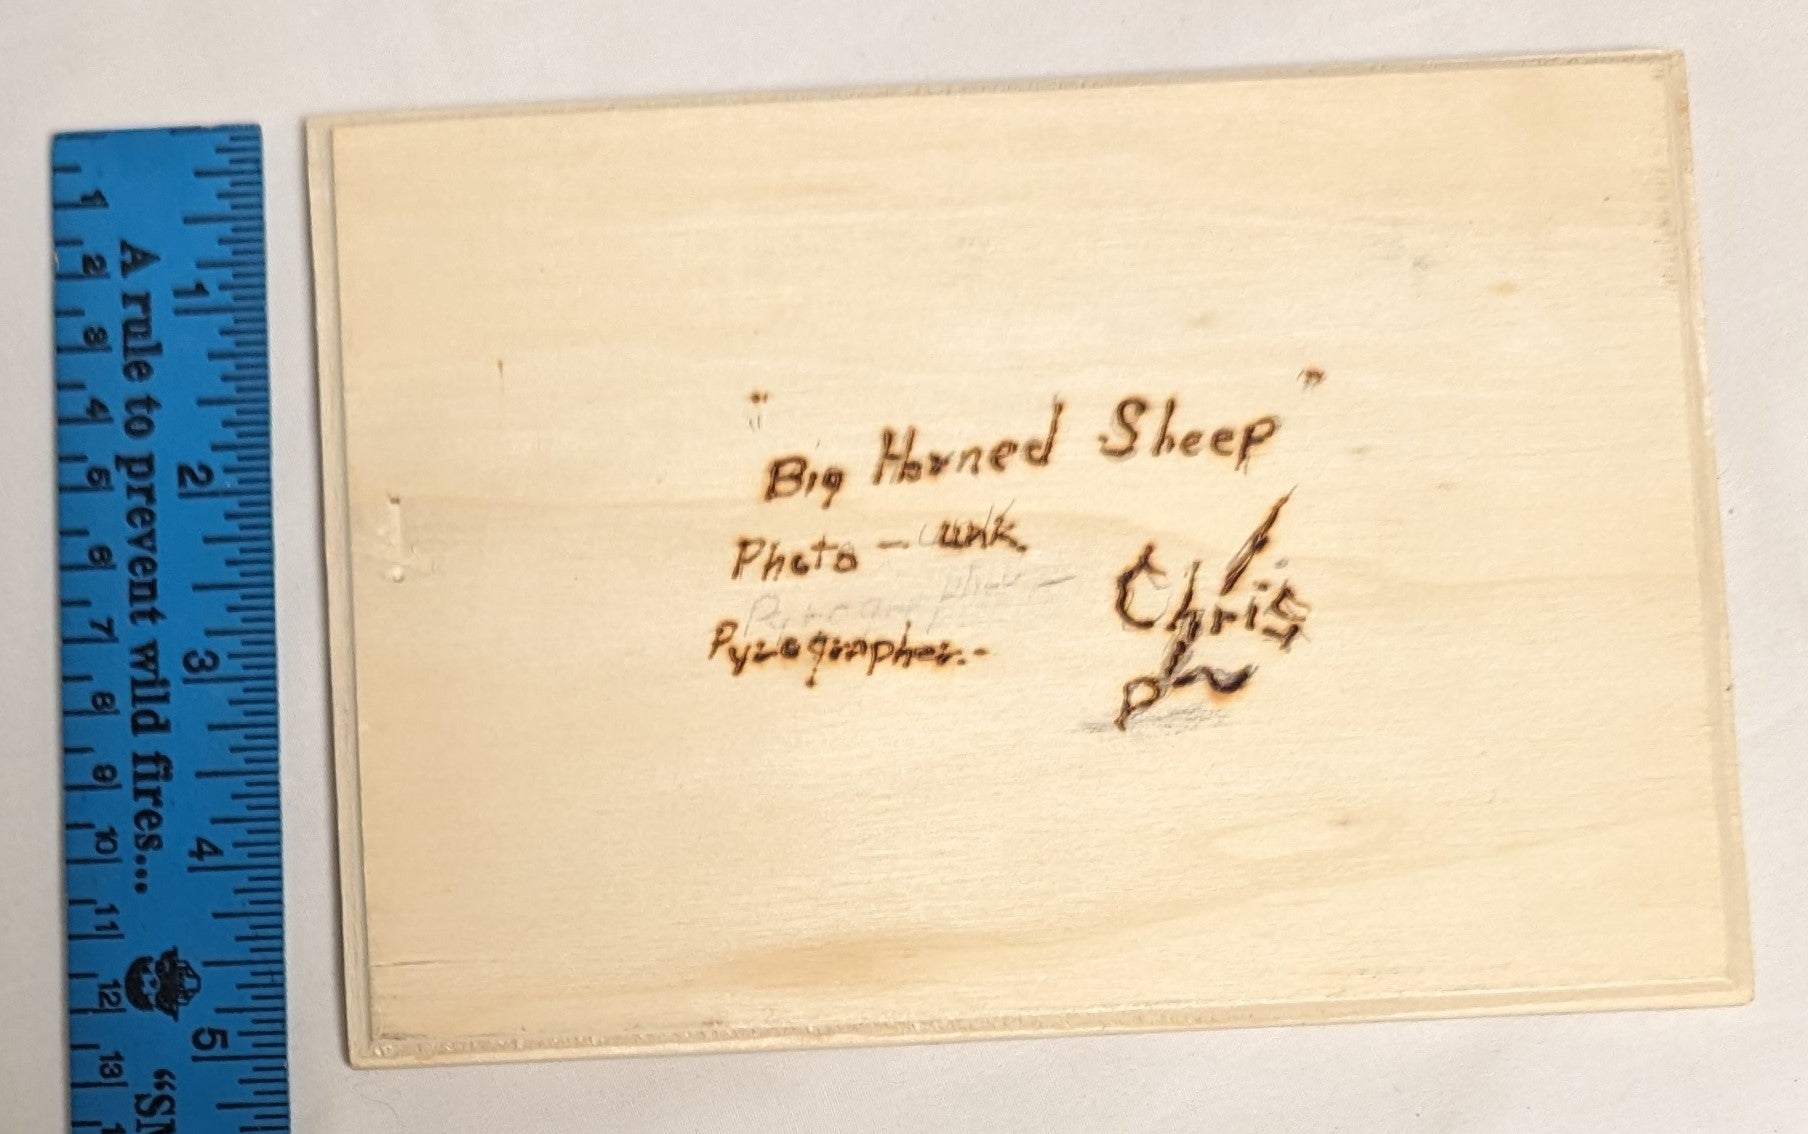 A rule to prevent wild fires... "SM
1 2 3 4 5
1 2 3 4 5 6 7 8 9 10 11 12 13
"Big Horned Sheep"
Photo - unk.
Pyrographer.-
Chris
P